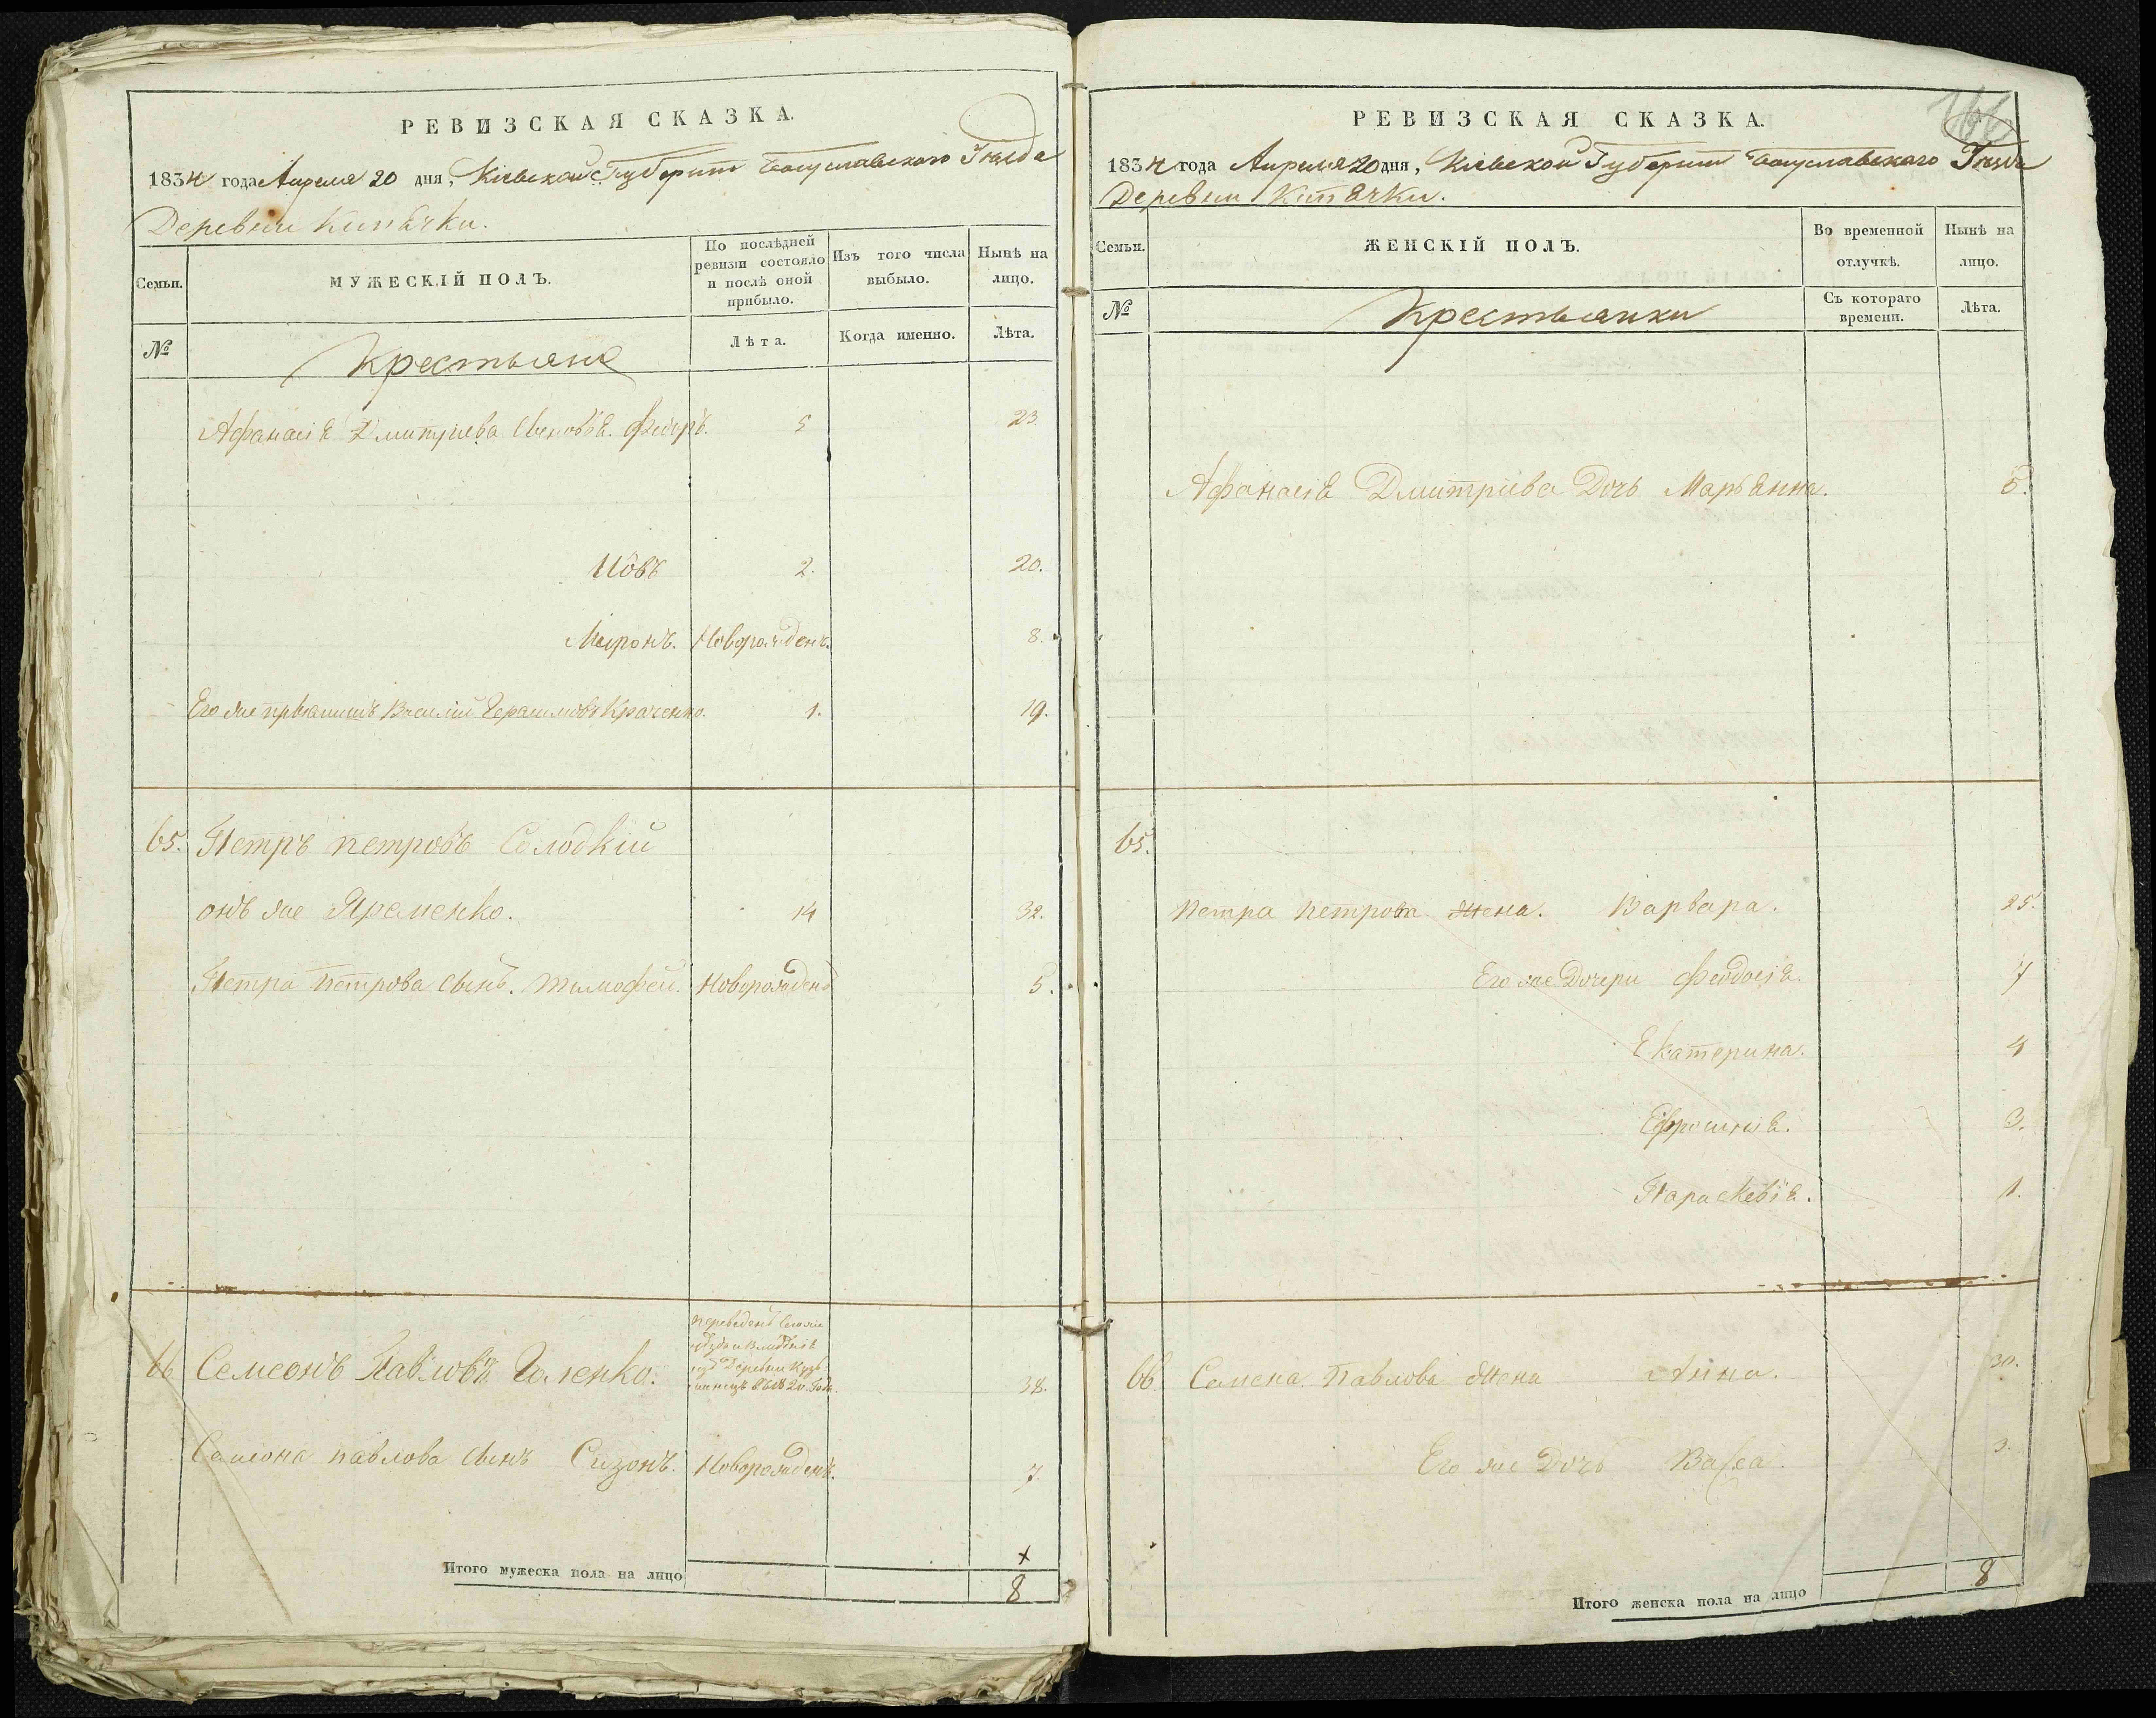 РЕВИЗСКАЯ СКАЗКА.
1834 года Апреля 20 дня, Кіевской Губерніи Богуславскаго Уезда
Деревни Кипячки.
Семьи.
МУЖЕСКІЙ ПОЛЪ.
По послѣдней ревизіи состояло и послѣ оной прибыло.
Изъ того числа выбыло.
Нынѣ на лицо.
№
Крестьяне
Лѣта.
Когда именно.
Лѣта.
Афанасія Дмитріева Сыновья. Федоръ. 5 23.
Іовъ 2. 20.
Миронъ. Новорожденъ. 8.
Его же Василій Герасимовъ Кравченко. 1. 19.
65. Петръ Петровъ Солодкій
онъ же Яременко. 14 32.
Петра Петрова Сынъ. Тимофей. Новорожденъ 5.
переведенъ
изъ Деревни
20. Года.
66 Семеонъ Павловъ Галенко. 38.
Семеона Павлова Сынъ Сизонъ. Новорожденъ. 7.
Итого мужеска пола на лицо
8
РЕВИЗСКАЯ СКАЗКА.
1834 года Апреля 20 дня, Кіевской Губерніи Богуславскаго Уезда
Деревни Кипячки.
Семьи.
ЖЕНСКІЙ ПОЛЪ.
Во временной отлучкѣ.
Нынѣ на лицо.
№
Крестьянки
Съ котораго времени.
Лѣта.
Афанасія Дмитріева Дочь Марьянна. 5.
65.
Петра Петрова Жена. Варвара. 25.
Его же Дочери Феодосія. 7
Екатерина. 4
Ефросинія. 3.
Параскевія. 1.
66. Семена Павлова Жена Анна. 30.
Его же Дочь Васса. 3.
Итого женска пола на лицо
8